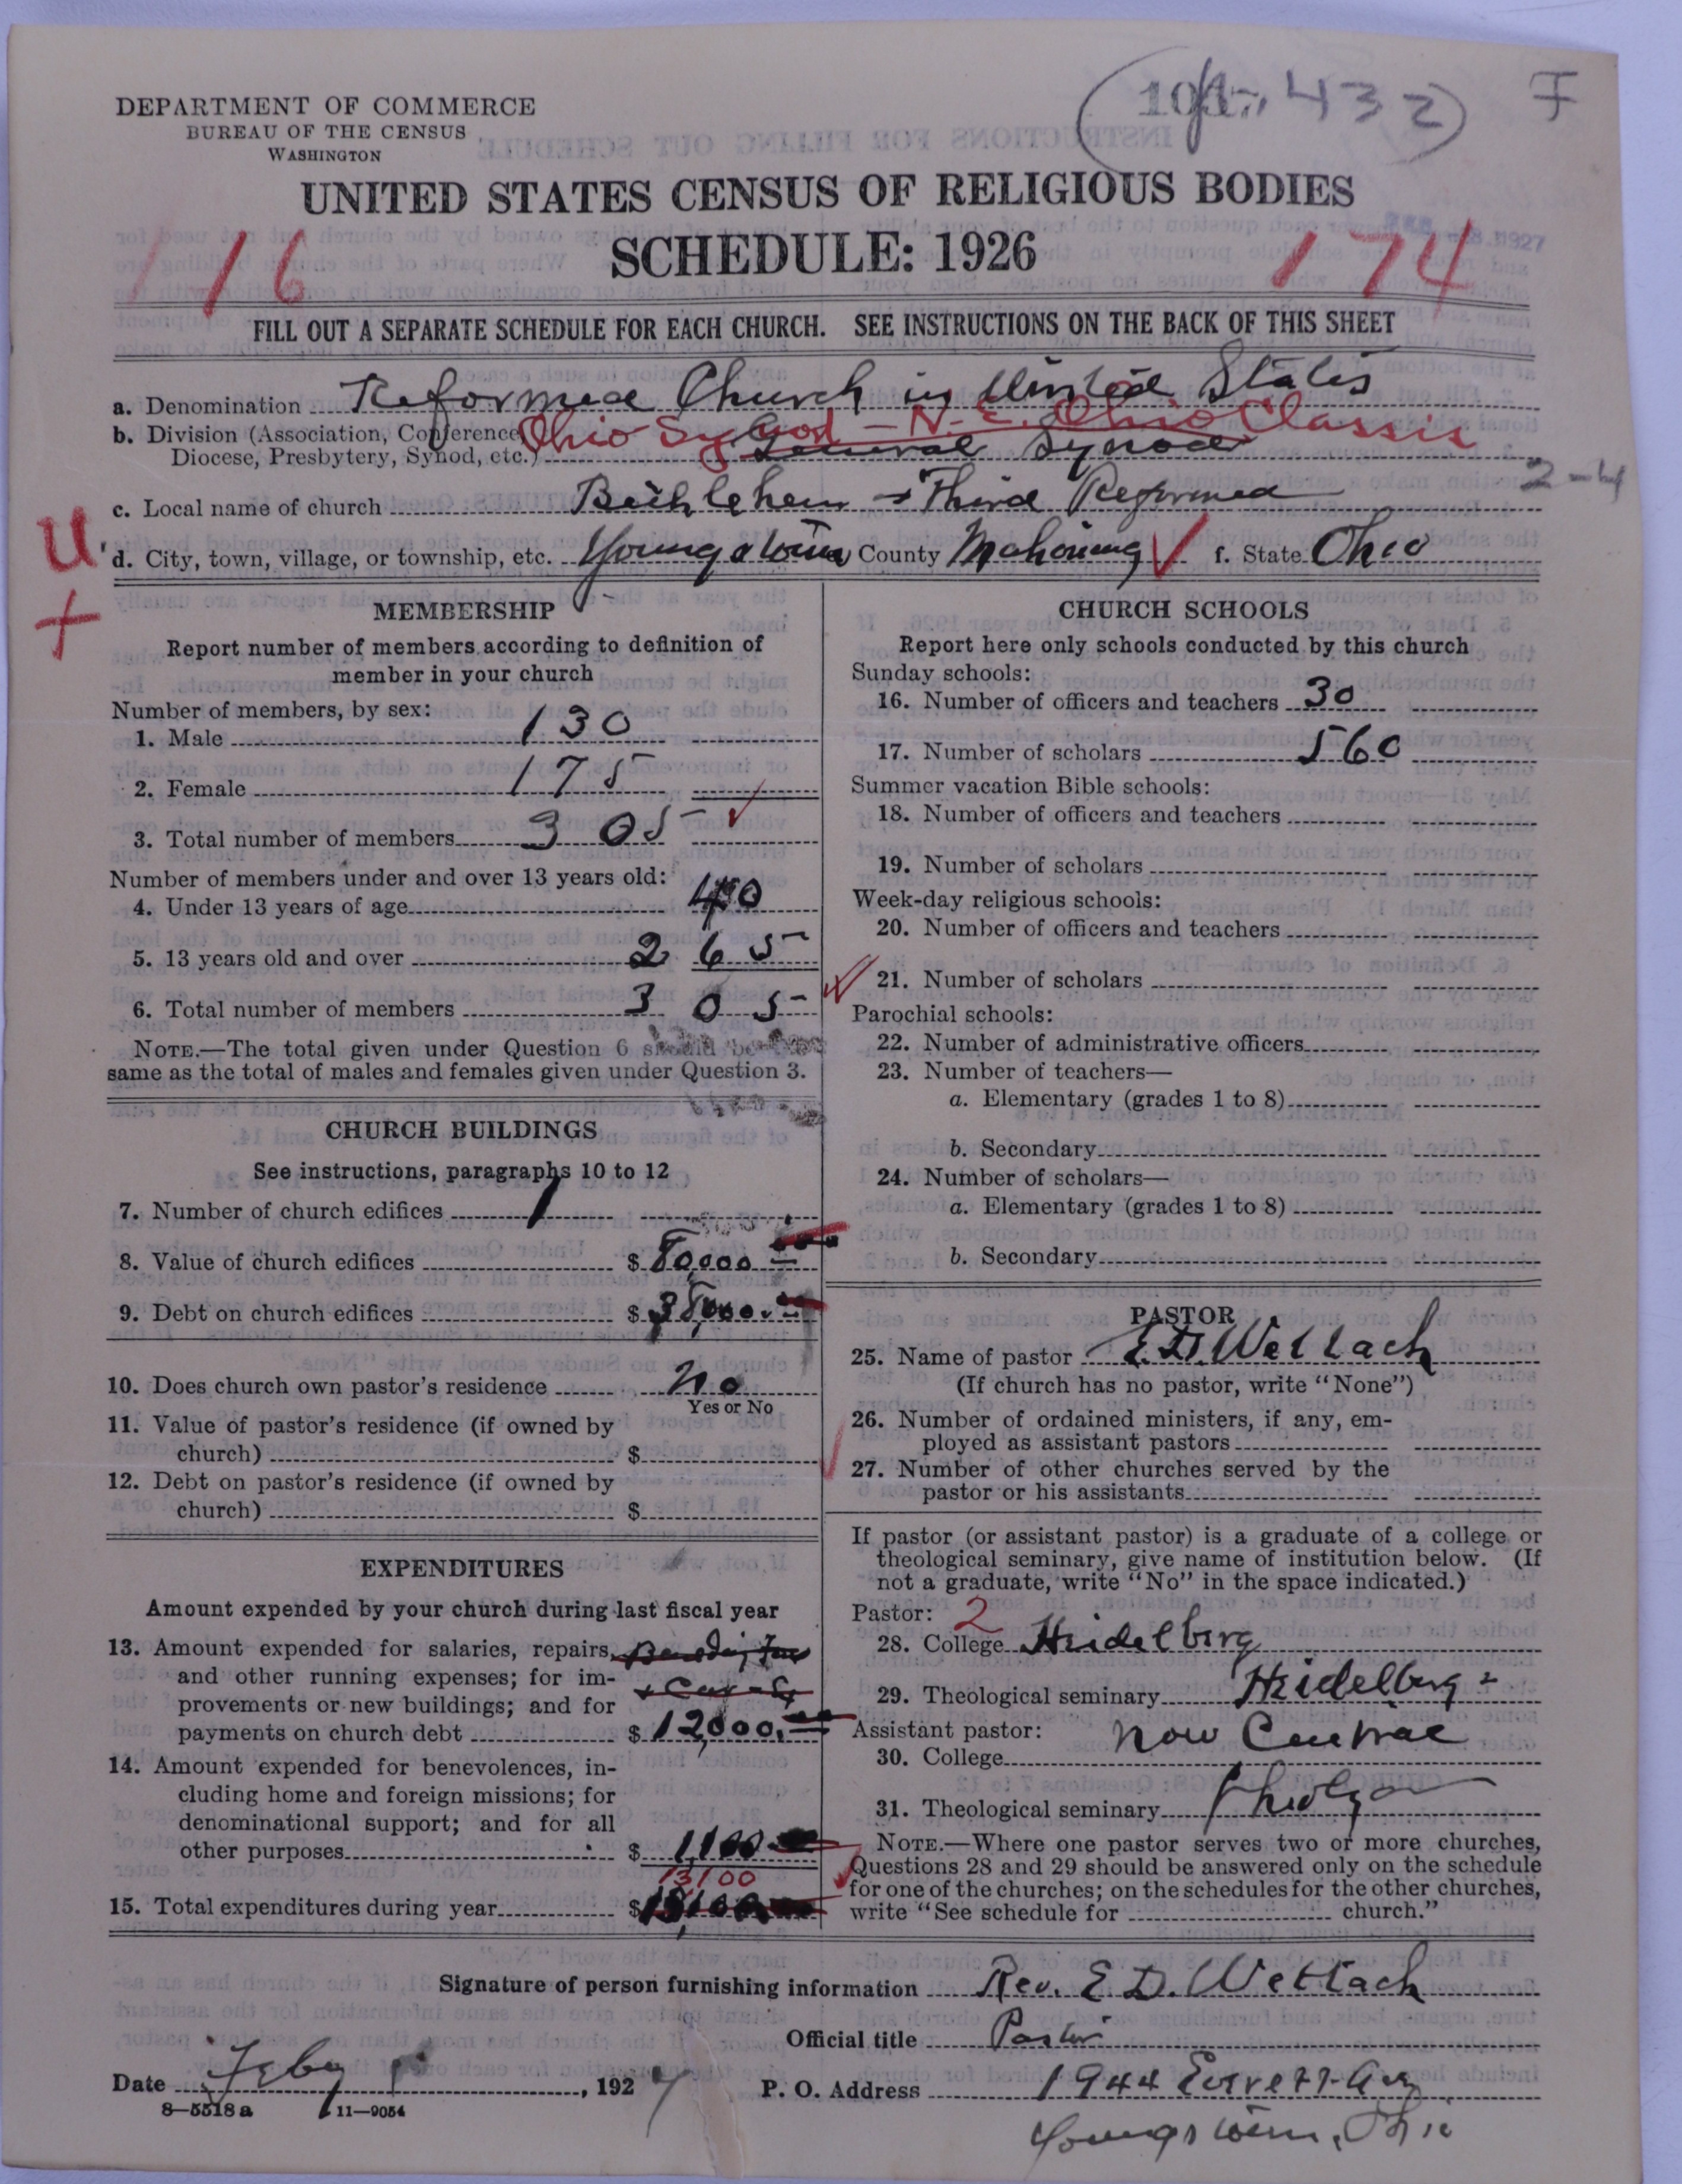 DEPARTMENT OF COMMERCE
BUREAU OF THE CENSUS
WASHINGTON
432
F
UNITED STATES CENSUS OF RELIGIOUS BODIES
SCHEDULE: 1926
116
174
1927
FILL OUT A SEPARATE SCHEDULE FOR EACH CHURCH. SEE INSTRUCTIONS ON THE BACK OF THIS SHEET
a. Denomination Reformed Church in United States
b. Division (Association, Conference, Ohio Synod - N. E. Ohio Classis
Diocese, Presbytery, Synod, etc.) General Synod
2-4
c. Local name of church Bethlehem + Third Reformed
U
d. City, town, village, or township, etc. Youngstown County Mahoning ✓ f. State Ohio
+
MEMBERSHIP
Report number of members according to definition of
member in your church
Number of members, by sex:
1. Male 130
2. Female 175
3. Total number of members 305 ✓
Number of members under and over 13 years old:
4. Under 13 years of age 40
5. 13 years old and over 265
6. Total number of members 305
NOTE.—The total given under Question 6 should be the
same as the total of males and females given under Question 3.
CHURCH BUILDINGS
See instructions, paragraphs 10 to 12
7. Number of church edifices 1
8. Value of church edifices $ 80,000
9. Debt on church edifices $ 38,000
10. Does church own pastor's residence No
Yes or No
11. Value of pastor's residence (if owned by
church) $
12. Debt on pastor's residence (if owned by
church) $
EXPENDITURES
Amount expended by your church during last fiscal year
13. Amount expended for salaries, repairs,
and other running expenses; for im-
provements or new buildings; and for
payments on church debt $ 12,000
14. Amount expended for benevolences, in-
cluding home and foreign missions; for
denominational support; and for all
other purposes $ 1,100
13100
15. Total expenditures during year $ 13,100
CHURCH SCHOOLS
Report here only schools conducted by this church
Sunday schools:
16. Number of officers and teachers 30
17. Number of scholars 560
Summer vacation Bible schools:
18. Number of officers and teachers
19. Number of scholars
Week-day religious schools:
20. Number of officers and teachers
21. Number of scholars
Parochial schools:
22. Number of administrative officers
23. Number of teachers—
a. Elementary (grades 1 to 8)
b. Secondary
24. Number of scholars—
a. Elementary (grades 1 to 8)
b. Secondary
PASTOR
25. Name of pastor E. D. Wettach
(If church has no pastor, write "None")
26. Number of ordained ministers, if any, em-
ployed as assistant pastors
27. Number of other churches served by the
pastor or his assistants
If pastor (or assistant pastor) is a graduate of a college or
theological seminary, give name of institution below. (If
not a graduate, write "No" in the space indicated.)
Pastor: 2
28. College Heidelberg
29. Theological seminary Heidelberg
Assistant pastor: now Central
30. College
31. Theological seminary
NOTE.—Where one pastor serves two or more churches,
Questions 28 and 29 should be answered only on the schedule
for one of the churches; on the schedules for the other churches,
write "See schedule for church."
Signature of person furnishing information Rev. E. D. Wettach
Official title Pastor
Date Feby , 1927
P. O. Address 1944 Everett Ave
8—5518 a 11—9054
Youngstown, Ohio